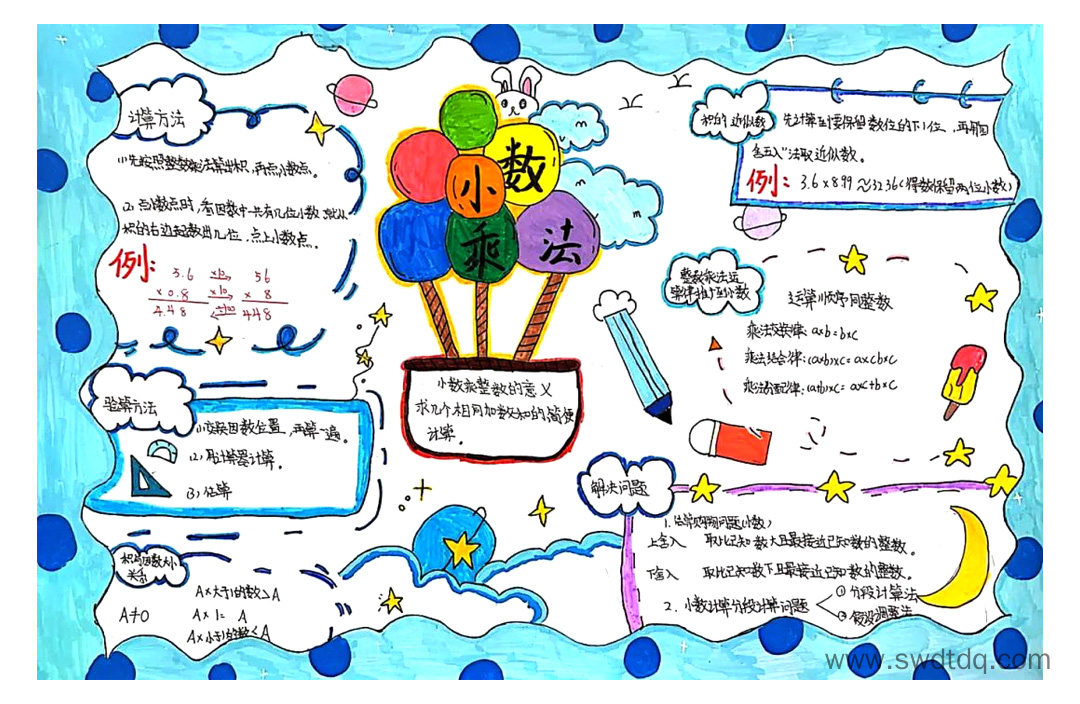 小数乘法
计算方法
(1)先按照整数乘法算出积，再点小数点。
(2)点小数点时，看因数中一共有几位小数，就从
积的右边起数出几位，点上小数点。
例：
3.6 ×10 56
×0.8 ×10 × 8
4.48 ÷100 448
验算方法
(1)交换因数位置，再算一遍。
(2)用计算器计算。
(3)估算
积与因数大小
关系
A≠0
A×大于1的数>A
A×1=A
A×小于1的数<A
小数乘整数的意义
求几个相同加数和的简便
计算。
积的近似数
先计算到要保留数位的下1位，再用"四
舍五入"法取近似数。
例：3.6×8.99≈32.36(得数保留两位小数)
整数乘法运
算律推广到小数
运算顺序同整数
乘法交换律：a×b=b×c
乘法结合律：(a×b)×c=a×c b×c
乘法分配律：(a+b)×c=a×c+b×c
解决问题
1.估算购物问题(小数)
上舍入 取比已知数大且最接近已知数的整数。
下舍入 取比已知数下且最接近已知数的整数。
2.小数计算分段计算问题
①分段计算法
②假设调整法
www.swdtdq.com